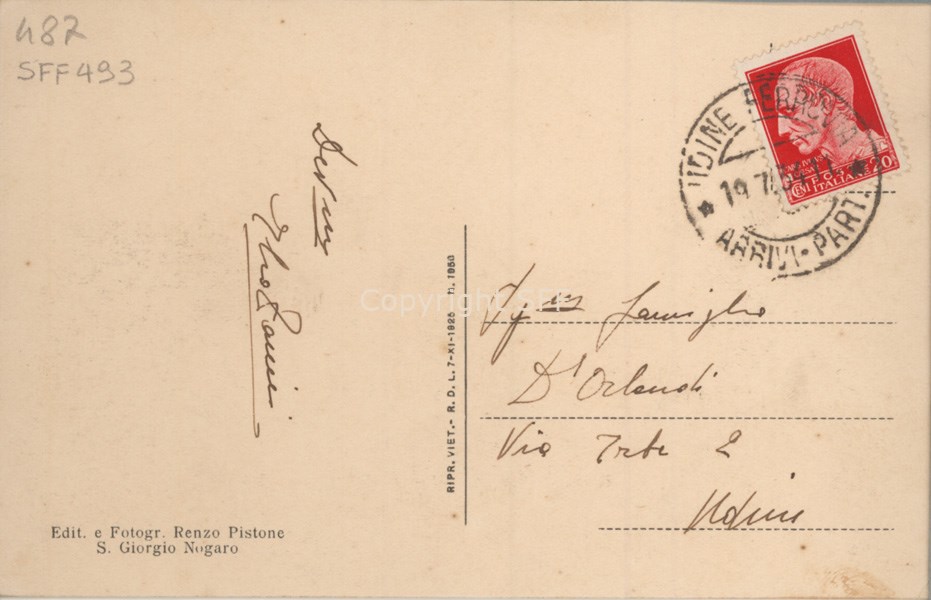 487
SFF493
UDINE FERROVIA
19.7.
ARRIVI-PART.
POSTE ITALIANE
CENT. 20
Dev.mi
RIPR. VIET.- R. D. L. 7-XI-1925 n. 1950
Copyright SFF
Famiglia
D'Orlandi
Via 2
Udine
Edit. e Fotogr. Renzo Pistone
S. Giorgio Nogaro